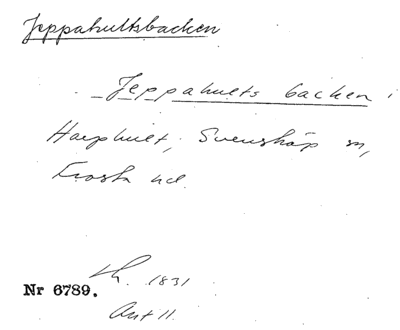 Jeppahultsbacken
Jeppahults backen i
Harphult, Svensköp sn,
Frosta hd.
Lh. 1831
Nr 6789.
Akt 11.